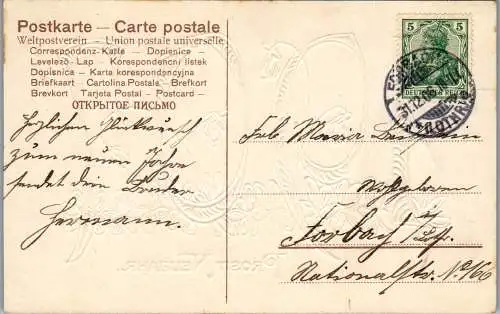 Postkarte – Carte postale
Weltpostverein – Union postale universelle
Correspondenz-Karte – Dopisnice –
Levelező-Lap – Korespondenčni listek
Dopisnica – Karta korespondencyjna
Briefkaart – Cartolina Postale – Brefkort
Brevkort – Tarjeta Postal – Postcard –
ОТКРЫТОЕ ПИСЬМО
5 5
DEUTSCHES REICH
31.12.
Herzlichen Glückwunsch
zum neuen Jahre
sendet dein Bruder
Hermann.
Maria
Forbach i/Lothr.
Nationalstr. No 160
PROSIT NEUJAHR